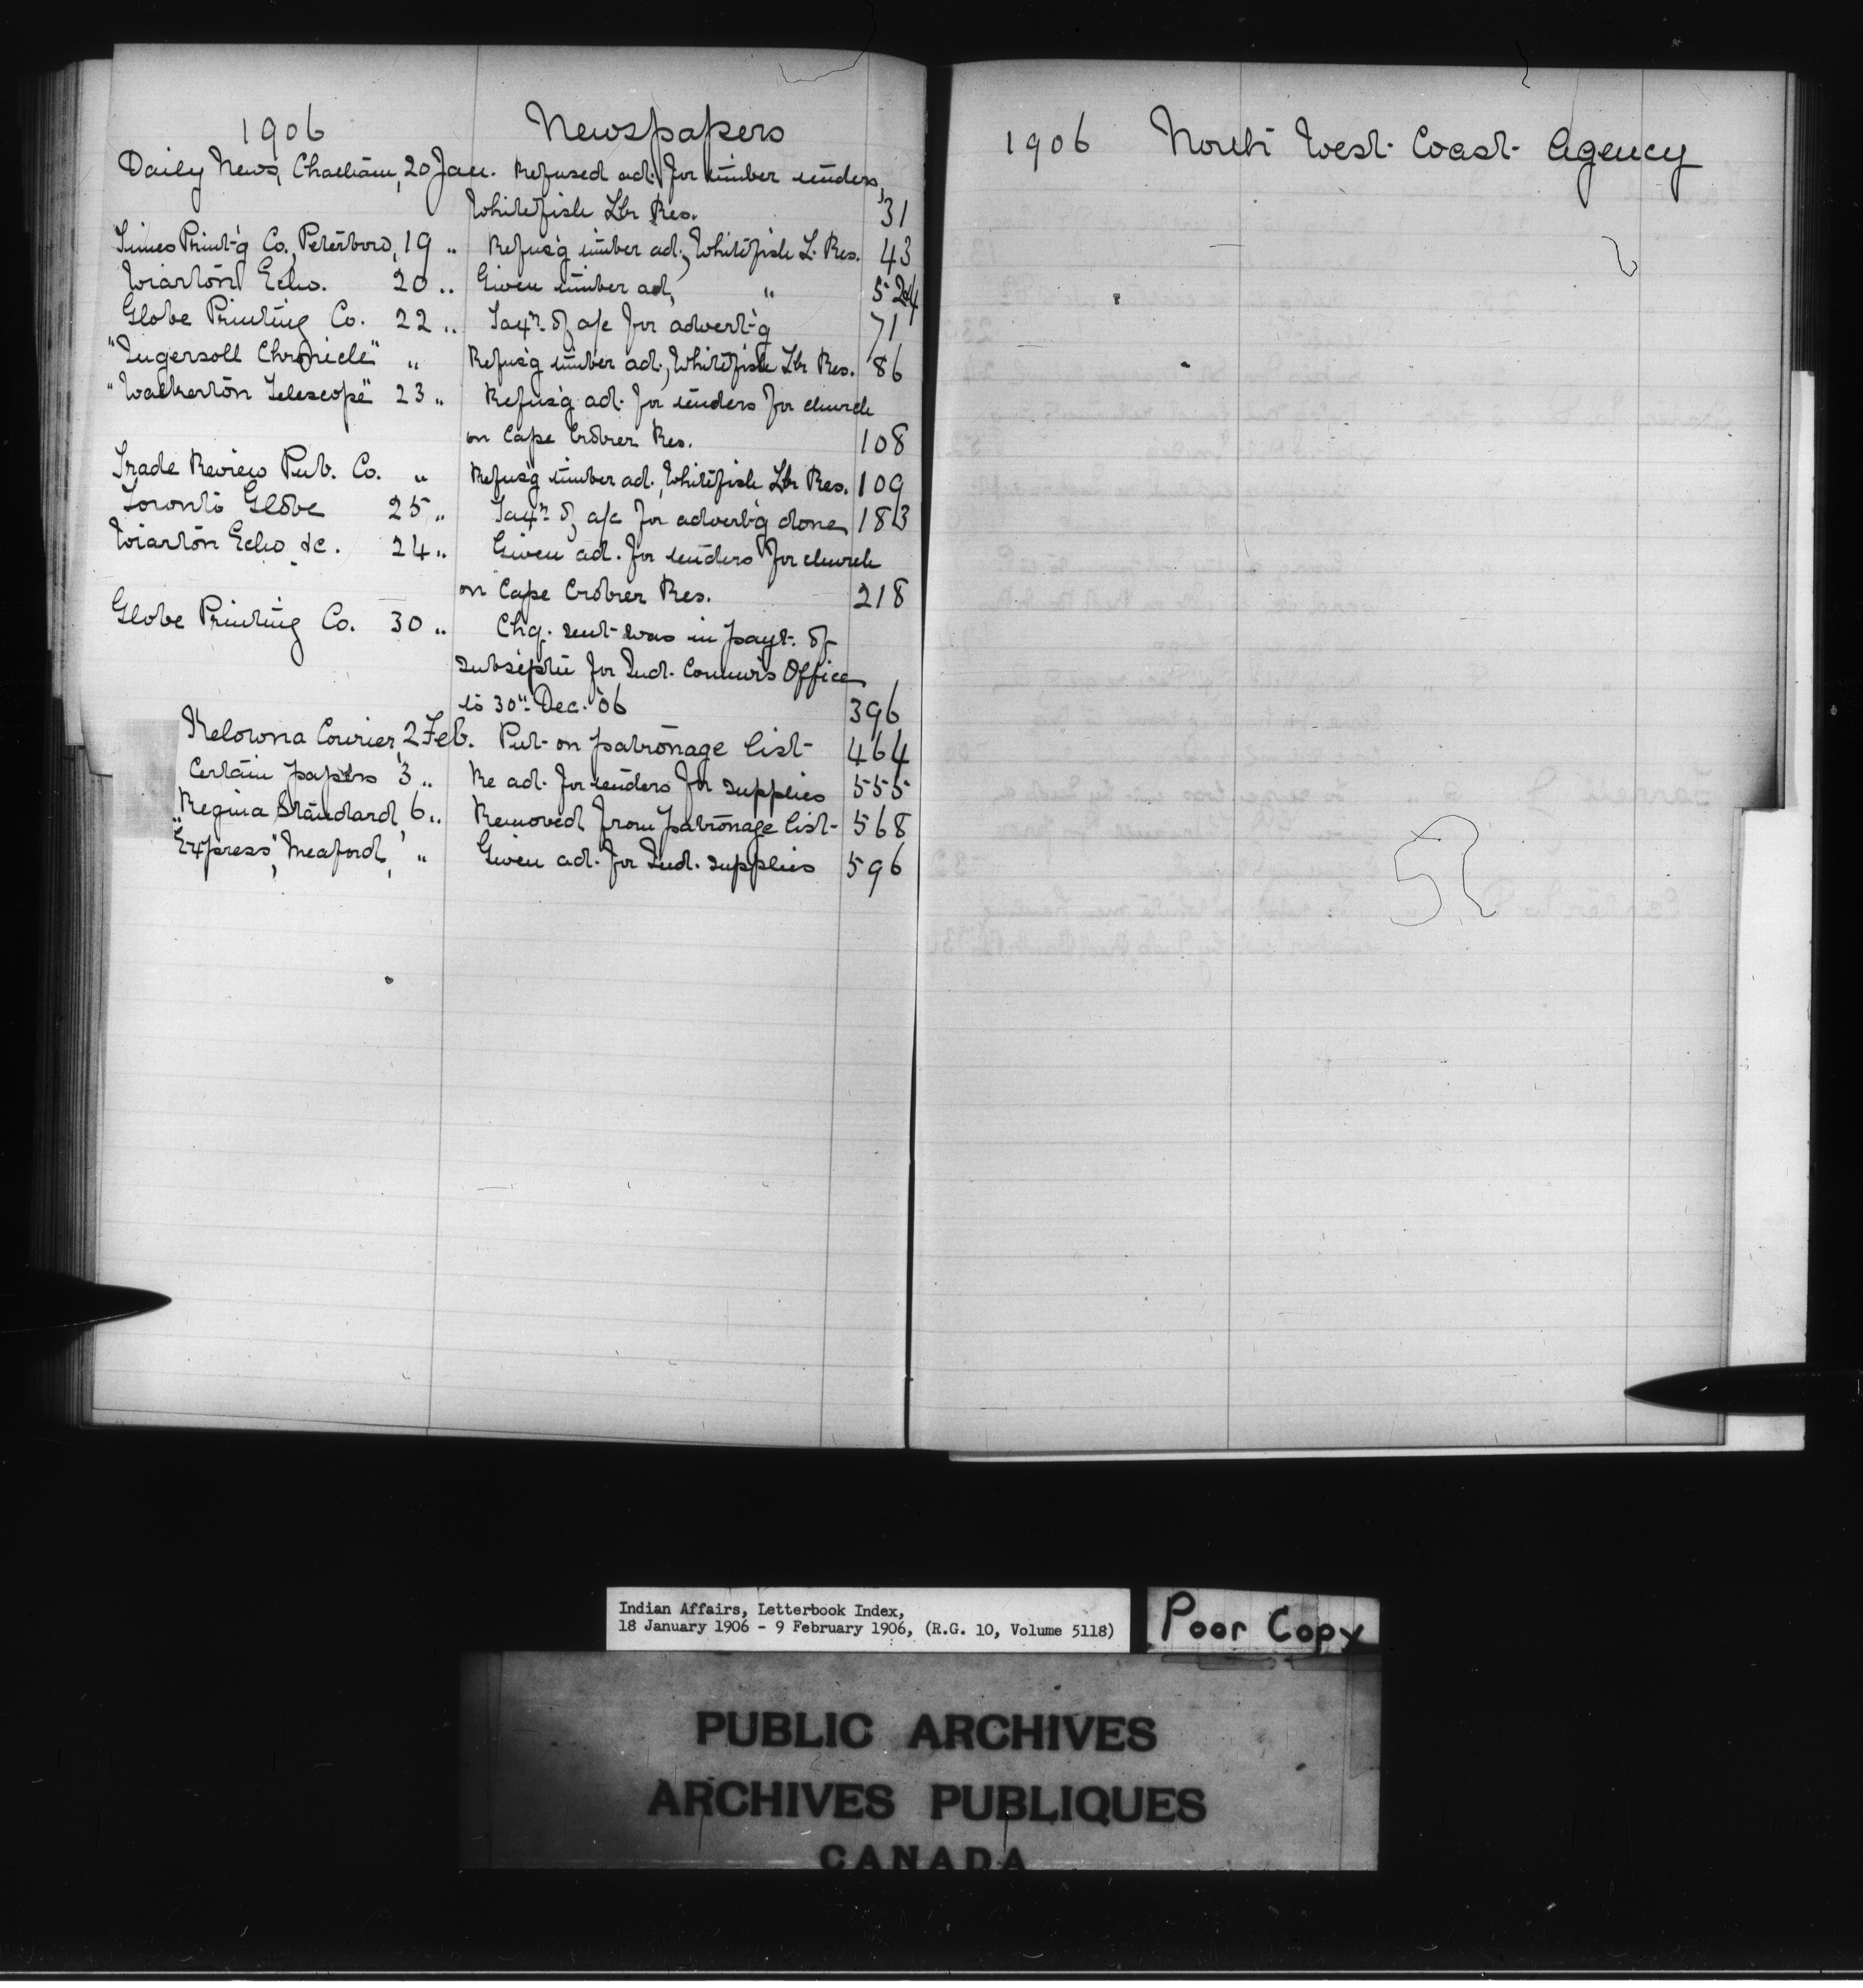 1906 Newspapers
Daily News, Chatham, 20 Jan. Refused ad. for timber tenders,
Whitefish Lkr Res. 31
Times Print'g Co., Peterboro, 19 " Refus'g timber ad., Whitefish L. Res. 43
Wiarton Echo. 20 " Given timber ad, " 
Globe Printing Co. 22 " Paym. of a/c for advert'g 71
"Ingersoll Chronicle" " Refus'g timber ad., Whitefish Lkr Res. 86
"Walkerton Telescope" 23 " Refus'g ad. for tenders for church
on Cape Croker Res. 108
Trade Review Pub. Co. " Refus'g timber ad., Whitefish Lkr Res. 109
Toronto Globe 25 " Paym. of a/c for advert'g done 183
Wiarton Echo &c. 24 " Given ad. for tenders for church
on Cape Croker Res. 218
Globe Printing Co. 30 " Chq. sent was in payt. of
for Ind. Office
to 30" Dec. '06 396
Kelowna Courier, 2 Feb. Put on patronage list 464
Certain papers 3 " Re ad. for tenders for supplies 555
Regina Standard, 6 " Removed from patronage list 568
"Express", Meaford, " Given ad. for Ind. supplies 596
1906 North West Coast Agency
Indian Affairs, Letterbook Index,
18 January 1906 - 9 February 1906, (R.G. 10, Volume 5118)
Poor Copy
PUBLIC ARCHIVES
ARCHIVES PUBLIQUES
CANADA